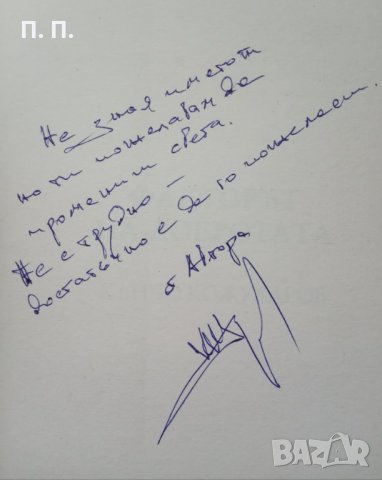 П. П.
Не зная името ти
но ти пожелавам да
промениш света.
Не е трудно –
достатъчно е да го пожелаеш.
от Автора
BAZAR